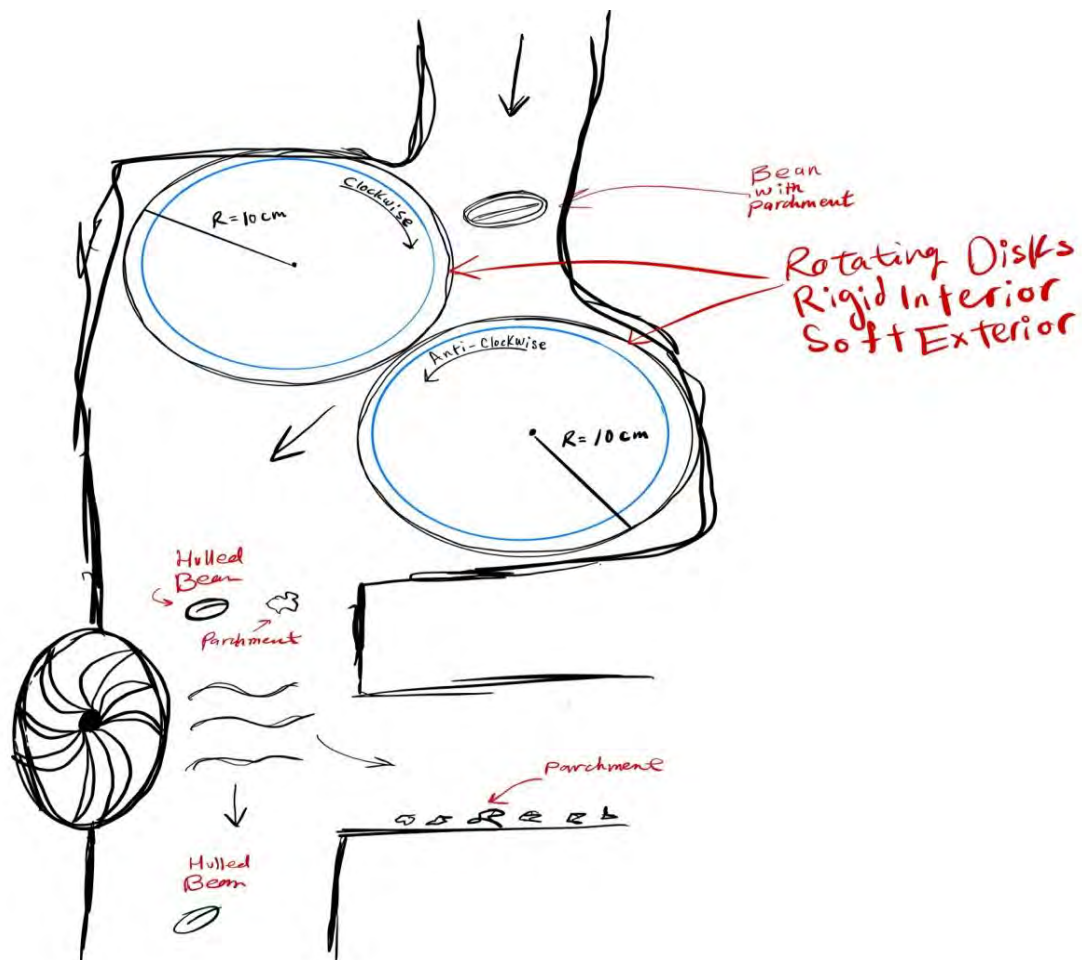 Clockwise
R=10cm
Bean
with
parchment
Rotating Disks
Rigid Interior
Soft Exterior
Anti-Clockwise
R=10cm
Hulled
Bean
Parchment
Parchment
Hulled
Bean